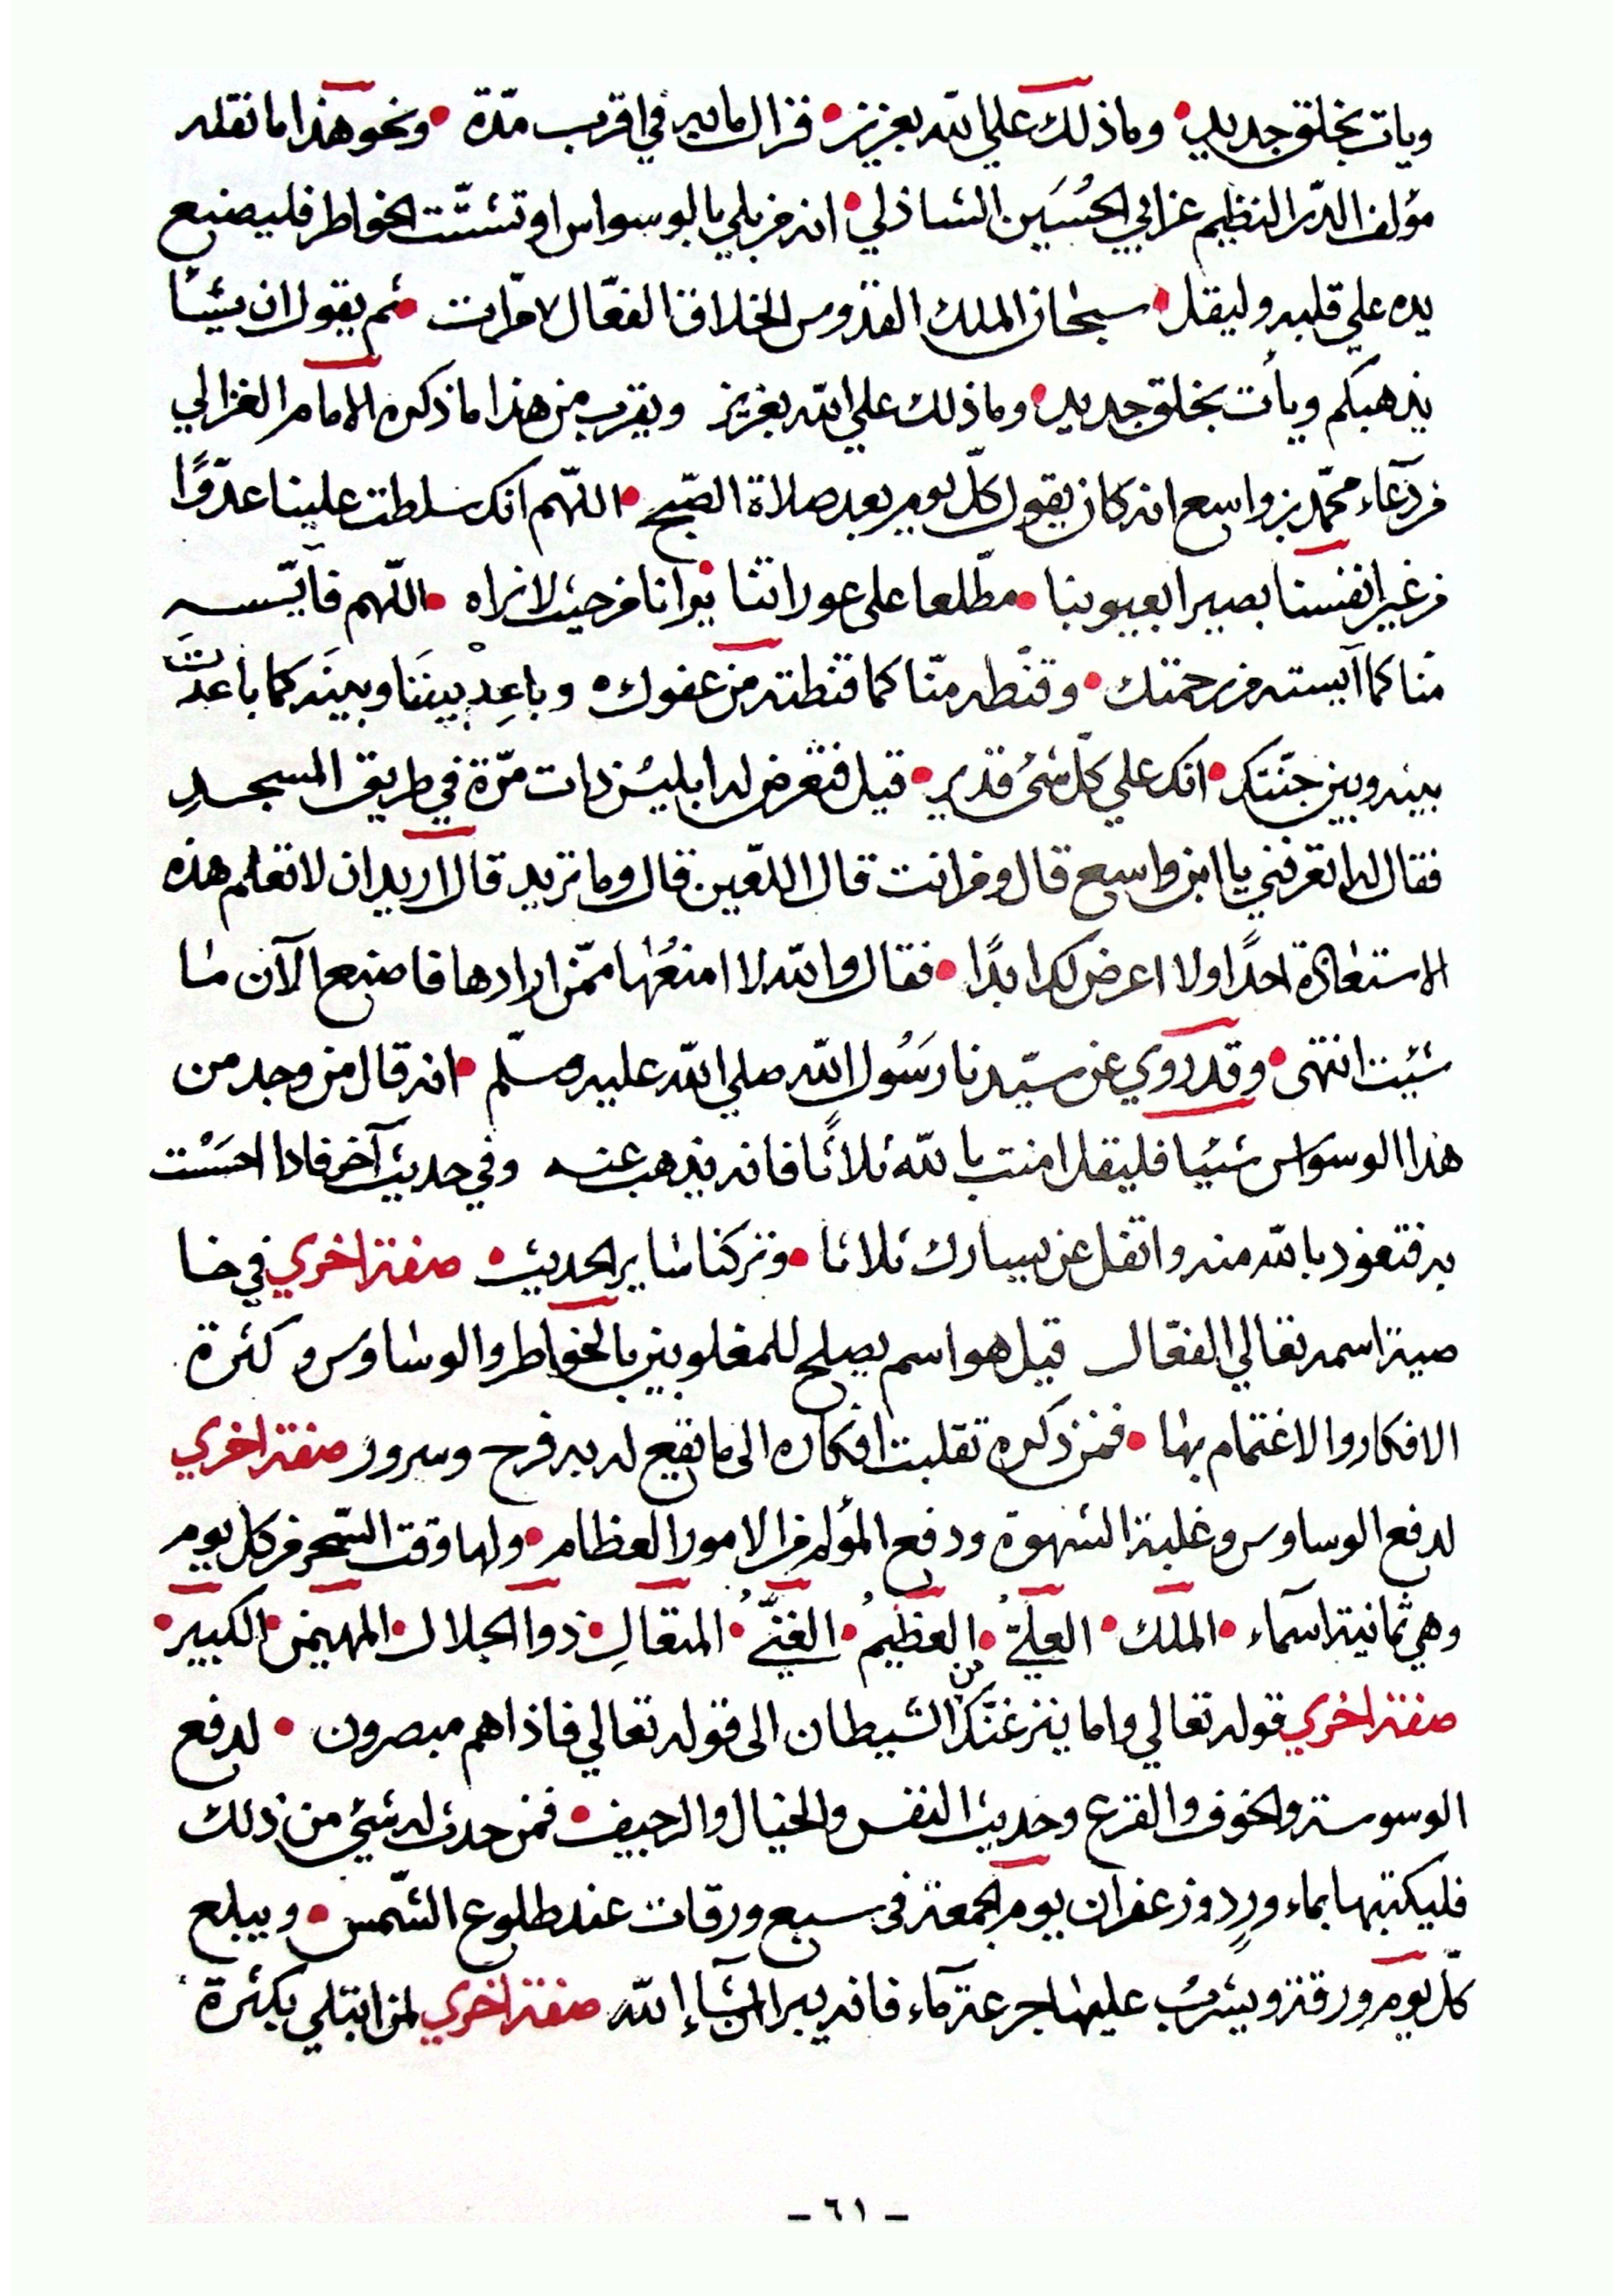 ويات بخلق جديد • وما ذلك على الله بعزيز • فزال ما به في اقرب مدّة • ونحو هذا ما نقله
مؤلف الدّر النظيم عن ابي الحُسَين الشاذلي • انه من بلي بالوسواس او تشتّت الخواطر فليضع
يده علي قلبه وليقل • سبحان الملك القدّوس الخلاق الفعّال ٧ مرّات • ثم يقول ان يشأ
يذهبكم ويأت بخلق جديد • وما ذلك علي الله بعزيز ويقرب من هذا ما ذكره الامام الغزالي
من دعآء محمّد بن واسع انه كان يقول كلّ يوم بعد صلاة الصّبح • اللّهم انك سلطت علينا عدّوًا
من غير انفسنا بصيرا بعيوبنا • مطّلعا على عوراتنا يرانا من حيث لا نراه • اللّهم فآيّسه
منّا كما آيسته من رحمتك • وقنّطه منّا كما قنّطته من عفوك • وباعِدْ بينَنَا وبينَه كما باعدْتَ
بينه وبين جنّتك • انك علي كلّ شئ قدير • قيل فتعرض له ابليس ذات مرّة في طريق المسجدِ
فقال له اتعرفني يا ابن واسع قال ومن انت قال اللّعين قال وما تريد قال اريد ان لا تعلم هذه
الاستعاذة احدًا ولا اعرض لك ابدًا • فقال والله لا امنعُها ممّن ارادها فاصنع الآن ما
شئت انتهى • وقد روي عن سيّدنا رَسُول الله صلي الله عليه وسلّم • انه قال من وجد من
هذا الوسوَاس شيئا فليقل امنت بالله ثلاثًا فانه يذهب عنه وفي حديث آخر فاذا احسَسْت
به فتعوذ بالله منه واتفل عن يسارك ثلاثا • وتركنا سَاير الحديث • صفة اخري في خا
صية اسمه تعالي الفعّال قيل هو اسم يصلح للمغلوبين بالخواطر والوسَاوس وكثرة
الافكار والاغتمام بها • فمن ذكره تقلبت افكاره الى ما تقع له به فرح وسرور صفة اخري
لدفع الوساوس وغلبة الشهوة ودفع المؤلم من الامور العظام • ولها وقت السّحر من كل يوم
وهي ثمانية اسمآء • الملك • العليّ • العظيمُ • الغنيّ • المتعالِ • ذو الجلال • المهيمن • الكبير •
صفة اخري قوله تعالي واما ينزغنّك من الشيطان الى قوله تعالي فاذا هم مبصرون • لدفع
الوسوسة والخوف والفزع وحديث النفس والخيال والرجيف • فمن حدث له شئي من ذلك
فليكتبها بماء وردٍ وزعفران يوم الجمعة في سبع ورقات عند طلوع الشّمس • ويبلع
كلّ يوم ورقة ويشربُ عليها جرعة مآء فانه يبرا ان شآء الله صفة اخري لمن ابتلي بكثرة
- ٦١ -